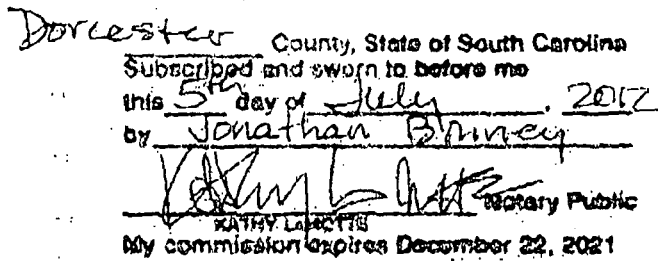 Dorcester County, State of South Carolina
Subscribed and sworn to before me
this 5th day of July, 2012
by Jonathan
Kathy Notary Public
KATHY
My commission expires December 22, 2021